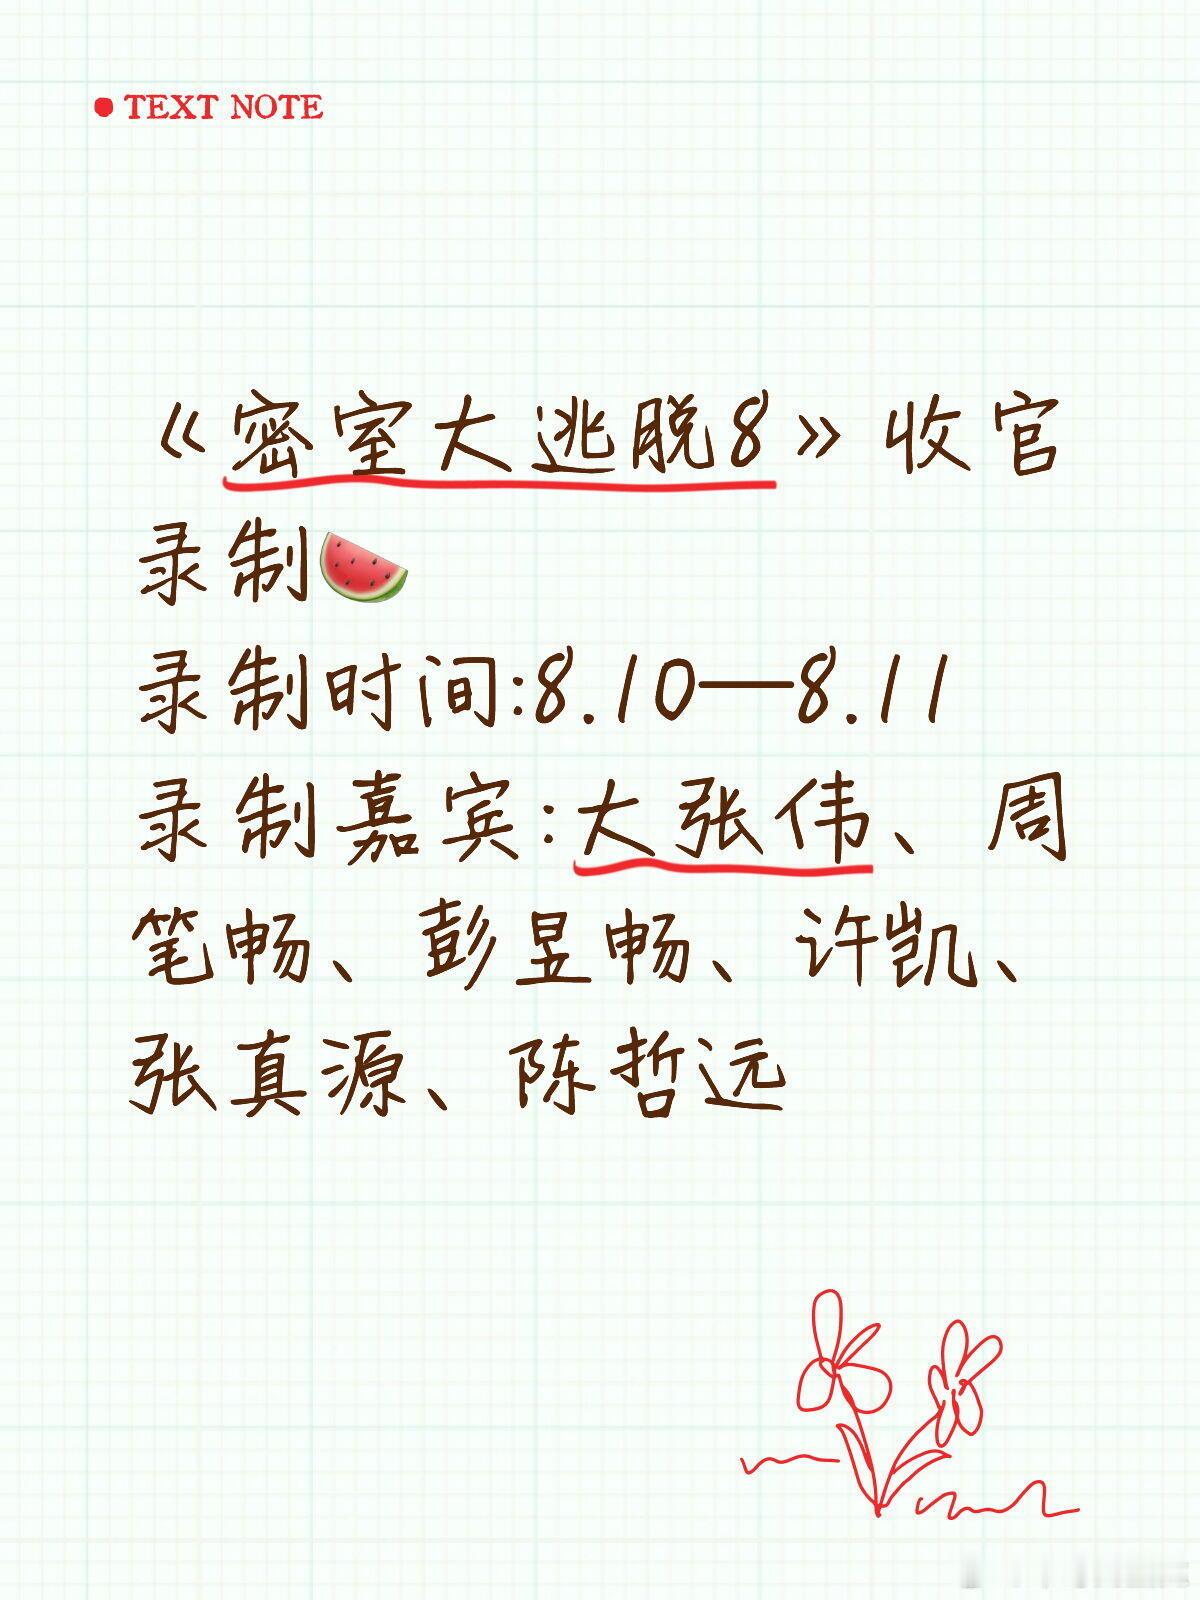 TEXT NOTE
《密室大逃脱8》收官
录制🍉
录制时间:8.10—8.11
录制嘉宾:大张伟、周
笔畅、彭昱畅、许凯、
张真源、陈哲远